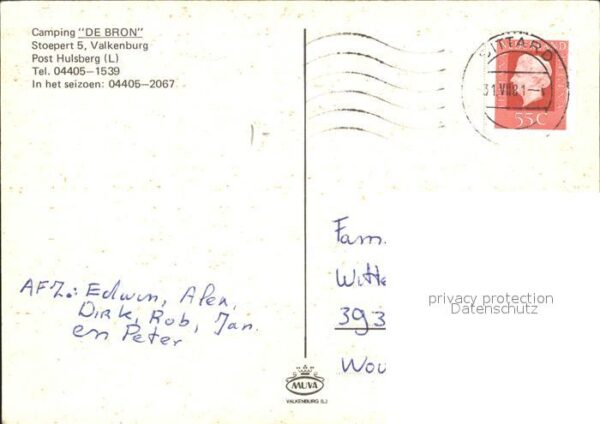 Camping "DE BRON"
Stoepert 5, Valkenburg
Post Hulsberg (L)
Tel. 04405—1539
In het seizoen: 04405—2067
SITTARD
55c
AFZ: Edwin, Alex,
Dirk, Rob, Jan.
en Peter
Fam.
Witte
393
Wou
privacy protection
Datenschutz
MUVA
VALKENBURG (L.)